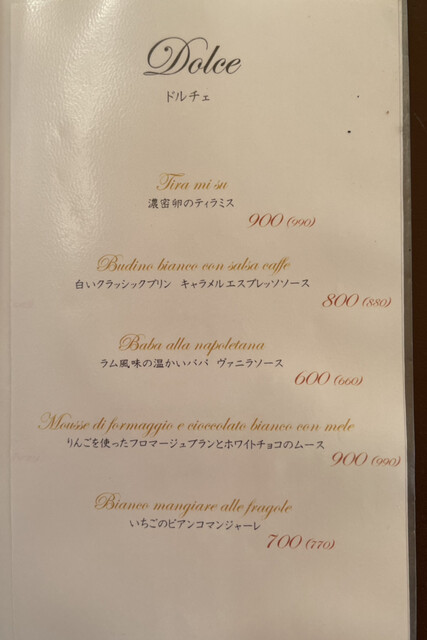 Dolce
ドルチェ
Tira mi su
濃密卵のティラミス
900 (990)
Budino bianco con salsa caffe
白いクラッシックプリン キャラメルエスプレッソソース
800 (880)
Baba alla napoletana
ラム風味の温かいババ ヴァニラソース
600 (660)
Mousse di formaggio e cioccolato bianco con mele
りんごを使ったフロマージュブランとホワイトチョコのムース
900 (990)
Bianco mangiare alle fragole
いちごのビアンコマンジャーレ
700 (770)